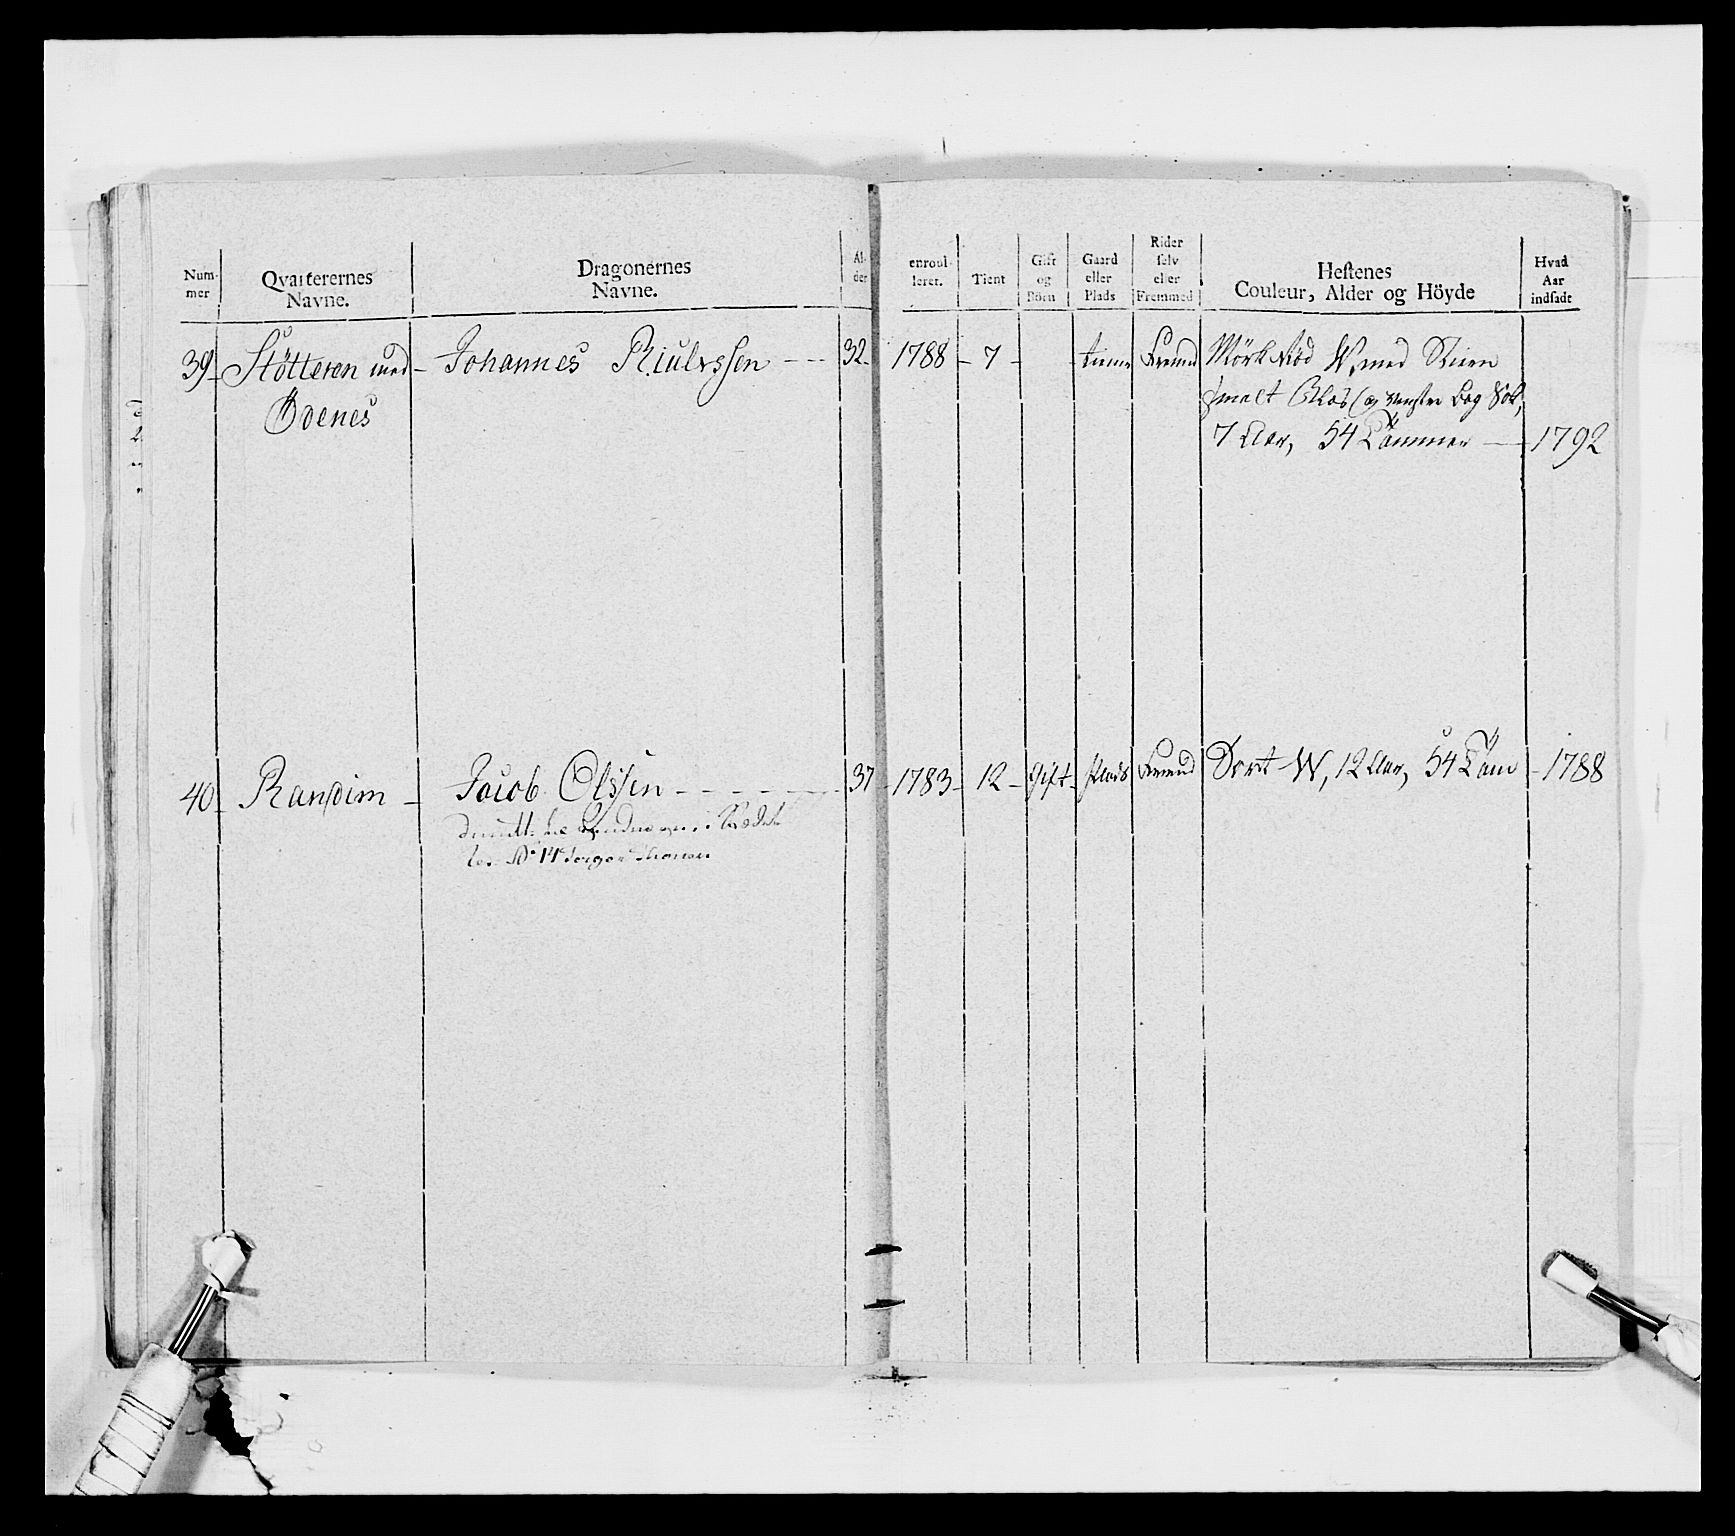 Num-
mer
Qvarterernes
Navne.
Dragonernes
Navne.
Al-
der
enroul-
leret.
Tient
Gift
og
Börn
Gaard
eller
Plads
Rider
selv
eller
Fremmed
Hestenes
Couleur, Alder og Höyde
Hvad
Aar
indsadt
39 Stötteren med - Johannes Riulvssen - - - 32 - 1788 - 7 - tiener Fremd Mörk Röd W, med Stiern
Ödenes smalt Blis og venster Bag Sok,
7 Aar, 54 Tommer - 1792
40 - Ramsim - Jacob Olssen - - - - 37 - 1783 - 12 - Gift - Plads Fremd Sort W, 12 Aar, 54 Tom - 1788
i Stædet
No 14